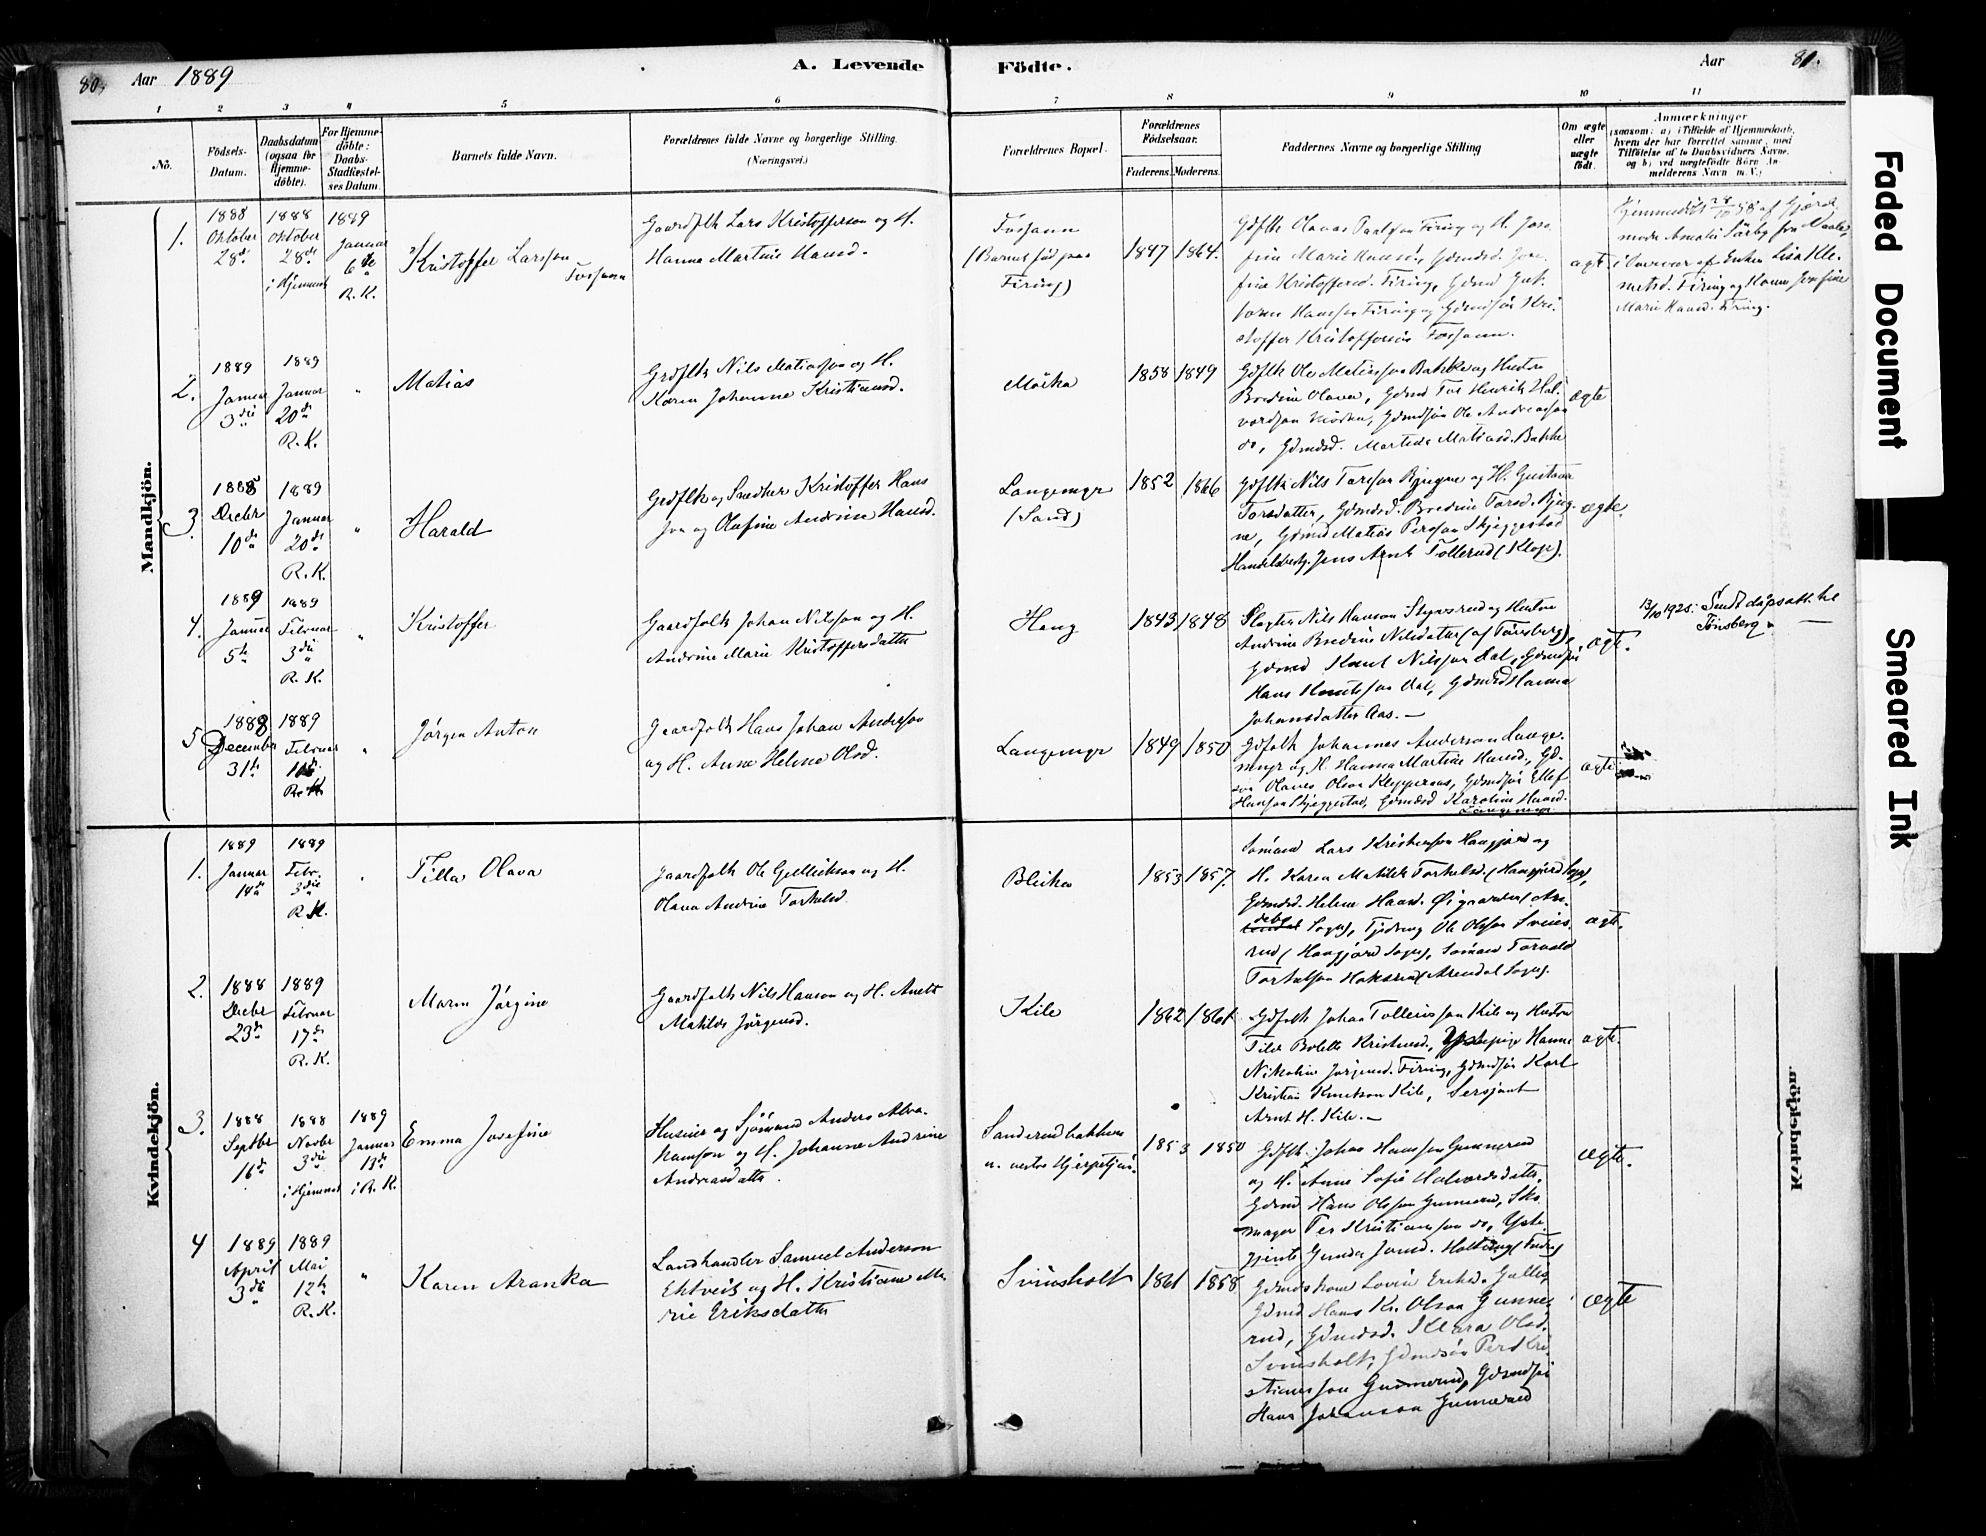 80.
Aar 1889
A. Levende
Födte.
Aar
81.
1
2
3
4
5
6
7
8
9
10
11
No.
Födsels-
Datum.
Daabsdatum
(ogsaa for
Hjemme-
döbte).
For Hjemme-
döbte:
Daabs-
Stadfæstel-
ses Datum.
Barnets fulde Navn.
Forældrenes fulde Navne og borgerlige Stilling.
(Næringsvei.)
Forældrenes Bopæl.
Forældrenes
Födselsaar.
Faderens. Moderens.
Faddernes Navne og borgerlige Stilling
Om ægte
eller
uægte
født.
Anmærkninger
(saasom: a) i Tilfælde af Hjemmedaab,
hvem der har forrettet samme, med
Tilföielse af to Daabsvidners Navne,
og b) ved uægtefödte Börn An-
melderens Navn m. V.)
Mandkjön.
1.
1888
Oktober
28de
1888
Oktober
28de
i Hjemmet
1889
Januar
6te
R. K.
Kristoffer Larsson
Fossann
Gaardfolk Lars Kristofferson og H.
Hanna Martine Hansd.
Fossann
(Barnet født paa
Firing)
1847
1864.
Gdflk Olavas Paalsson Firing og H. Jose-
fine Marie Hansd., Gdmdsd. Jose-
fine Kristoffersd. Firing, Gdmd Jak-
Hansson Firing og Gdmdsøn Kri-
stoffer Kristofferson Fossann.
ægte
Hjemmedøbt 28/10 88 af Gjorde-
moder Amalie Sørby fra Vaale,
i Overvær af Enken Lisa Kle-
metsd. Firing og Kone Josefine
Marie Hansd. Firing.
2.
1889
Januar
3die
1889
Januar
20de
R. K.
"
Matias
Grdflk Nils Matiasson og H.
Karen Johanne Kristiansd.
Mörka
1858
1849
Gdflk Ole Matiasson Bakke og Hustru
Bredine Olava, Gdmd Tor Henrik Hal-
vordson Mörken, Gdmdsøn Ole Andreasson
do, Gdmdsd. Martide Matiasd. Bakke
ægte
3.
1888
Decbr
10de
1889
Januar
20de
R. K.
"
Harald
Grdflk og Snedker Kristoffer Hans
son og Olufine Andrine Hansd.
Langemyr
(Sand)
1852
1866
Gdflk Nils Torsson Bjugne og H. Gustava
Torsdatter, Gdmdsd. Bredine Torsd. Bjug-
ne, Gdmd Matias Persson Skjeggestad
Handelsbestg. Jens Arnt Tollerud (Klop).
ægte.
4.
1889
Januar
5te
1889
Februar
3die
R. K.
"
Kristoffer
Gaardfolk Johan Nilsson og H.
Andrine Marie Kristoffersdatter
Haug
1843
1848
Slagter Nils Hanson Styrsrud og Hustru
Andrine Bredine Nilsdatter (af Tönsberg),
Gdmd Knut Nilsson Dal, Gdmdsøn
Hans Knutsson Dal, Gdmdsd Hanna
Johansdatter Aas. —
ægte.
13/10 1925. Sendt dåpsatt. til
Tönsberg. —
5
1888
December
31te
1889
Februar
10de
R. K.
"
Jørgen Anton
Gaardfolk Hans Johan Anderson
og H. Anne Helene Olsd.
Langemyr
1849
1850
Gdfolk Johannes Anderson Lange-
myr og H. Hanna Martine Hansd., Gd-
søn Olaves Olson Kleppernes, Gdmdsøn Ellef
Hansson Skjeggestad, Gdmdsd Karoline Hansd.
Langemyr
ægte
Kvindekjön.
1.
1889
Januar
14de
1889
Febr.
3die
R. K.
Tilla Olava
Gaardfolk Ole Gulliksson og H.
Olava Andrine Torkelsd.
Bleika
1853
1857.
Sömand Lars Kristensson Haugjord og
H. Karen Matilde Torkelsd. (Haugjord Sogn),
Gdmdsd. Helene Hansd. (An-
deb Sogn), Ole Olsson Svins-
rud (Haugjord Sogn), Sömand Torvald
Torkelson Hoksrud (Arendal Sogn).
ægte.
2.
1888
Decbr
23de
1889
Februar
17de
R. K.
Maren Jörgine
Gaardfolk Nils Hanson og H. Anette
Matilde Jørgensd.
Kile
1862
1861
Gdfolk Johan Tollefsson Kile og Hustru
Tilde Bolette Kristensd., Hanne
Nikoline Jørgensd. Firing, Gdmdsøn Karl
Kristian Knutson Kile, Sersjant
Arnt H. Kile. —
ægte.
3.
1888
Septbr
16de
1888
Novbr
3die
i Hjemmet
1889
Januar
13de
i R. K.
Emma Josefine
Husmd og Sjömand Anders Abra-
hamson og H. Johanne Andrine
Andreasdatter
Sanderudbakken
u. vestre Hjerpetjøn.
1853
1850
Gdflk Johan Hansson Gunnerud
og H. Anne Sofie Halvordsdatter,
Gdmd Hans Olsson Gunnerud, Sko-
mager Per Kristiansson do, Pike-
gjente Gunda Jonsd.
ægte.
4
1889
April
3die
1889
Mai
12te
R. K.
"
Karen Aranka
Landhandler Samuel Anderson
Ektveit og H. Kristiane Ma-
rie Eriksdatter
Svinsholt
1861
1858
Gdmdskone Lovise Eriksd. Gallis,
Gdmd Hans Kr. Olson Gunne-
rud, Gdmdsd. Klara Olsd.
Svinsholt, Gdmdsøn Per Kri-
stiansson Gunnerud, Gdmdsøn
Hans Johanson Gunnerud
ægte
Kvindekjön.
Faded Document
Smeared Ink